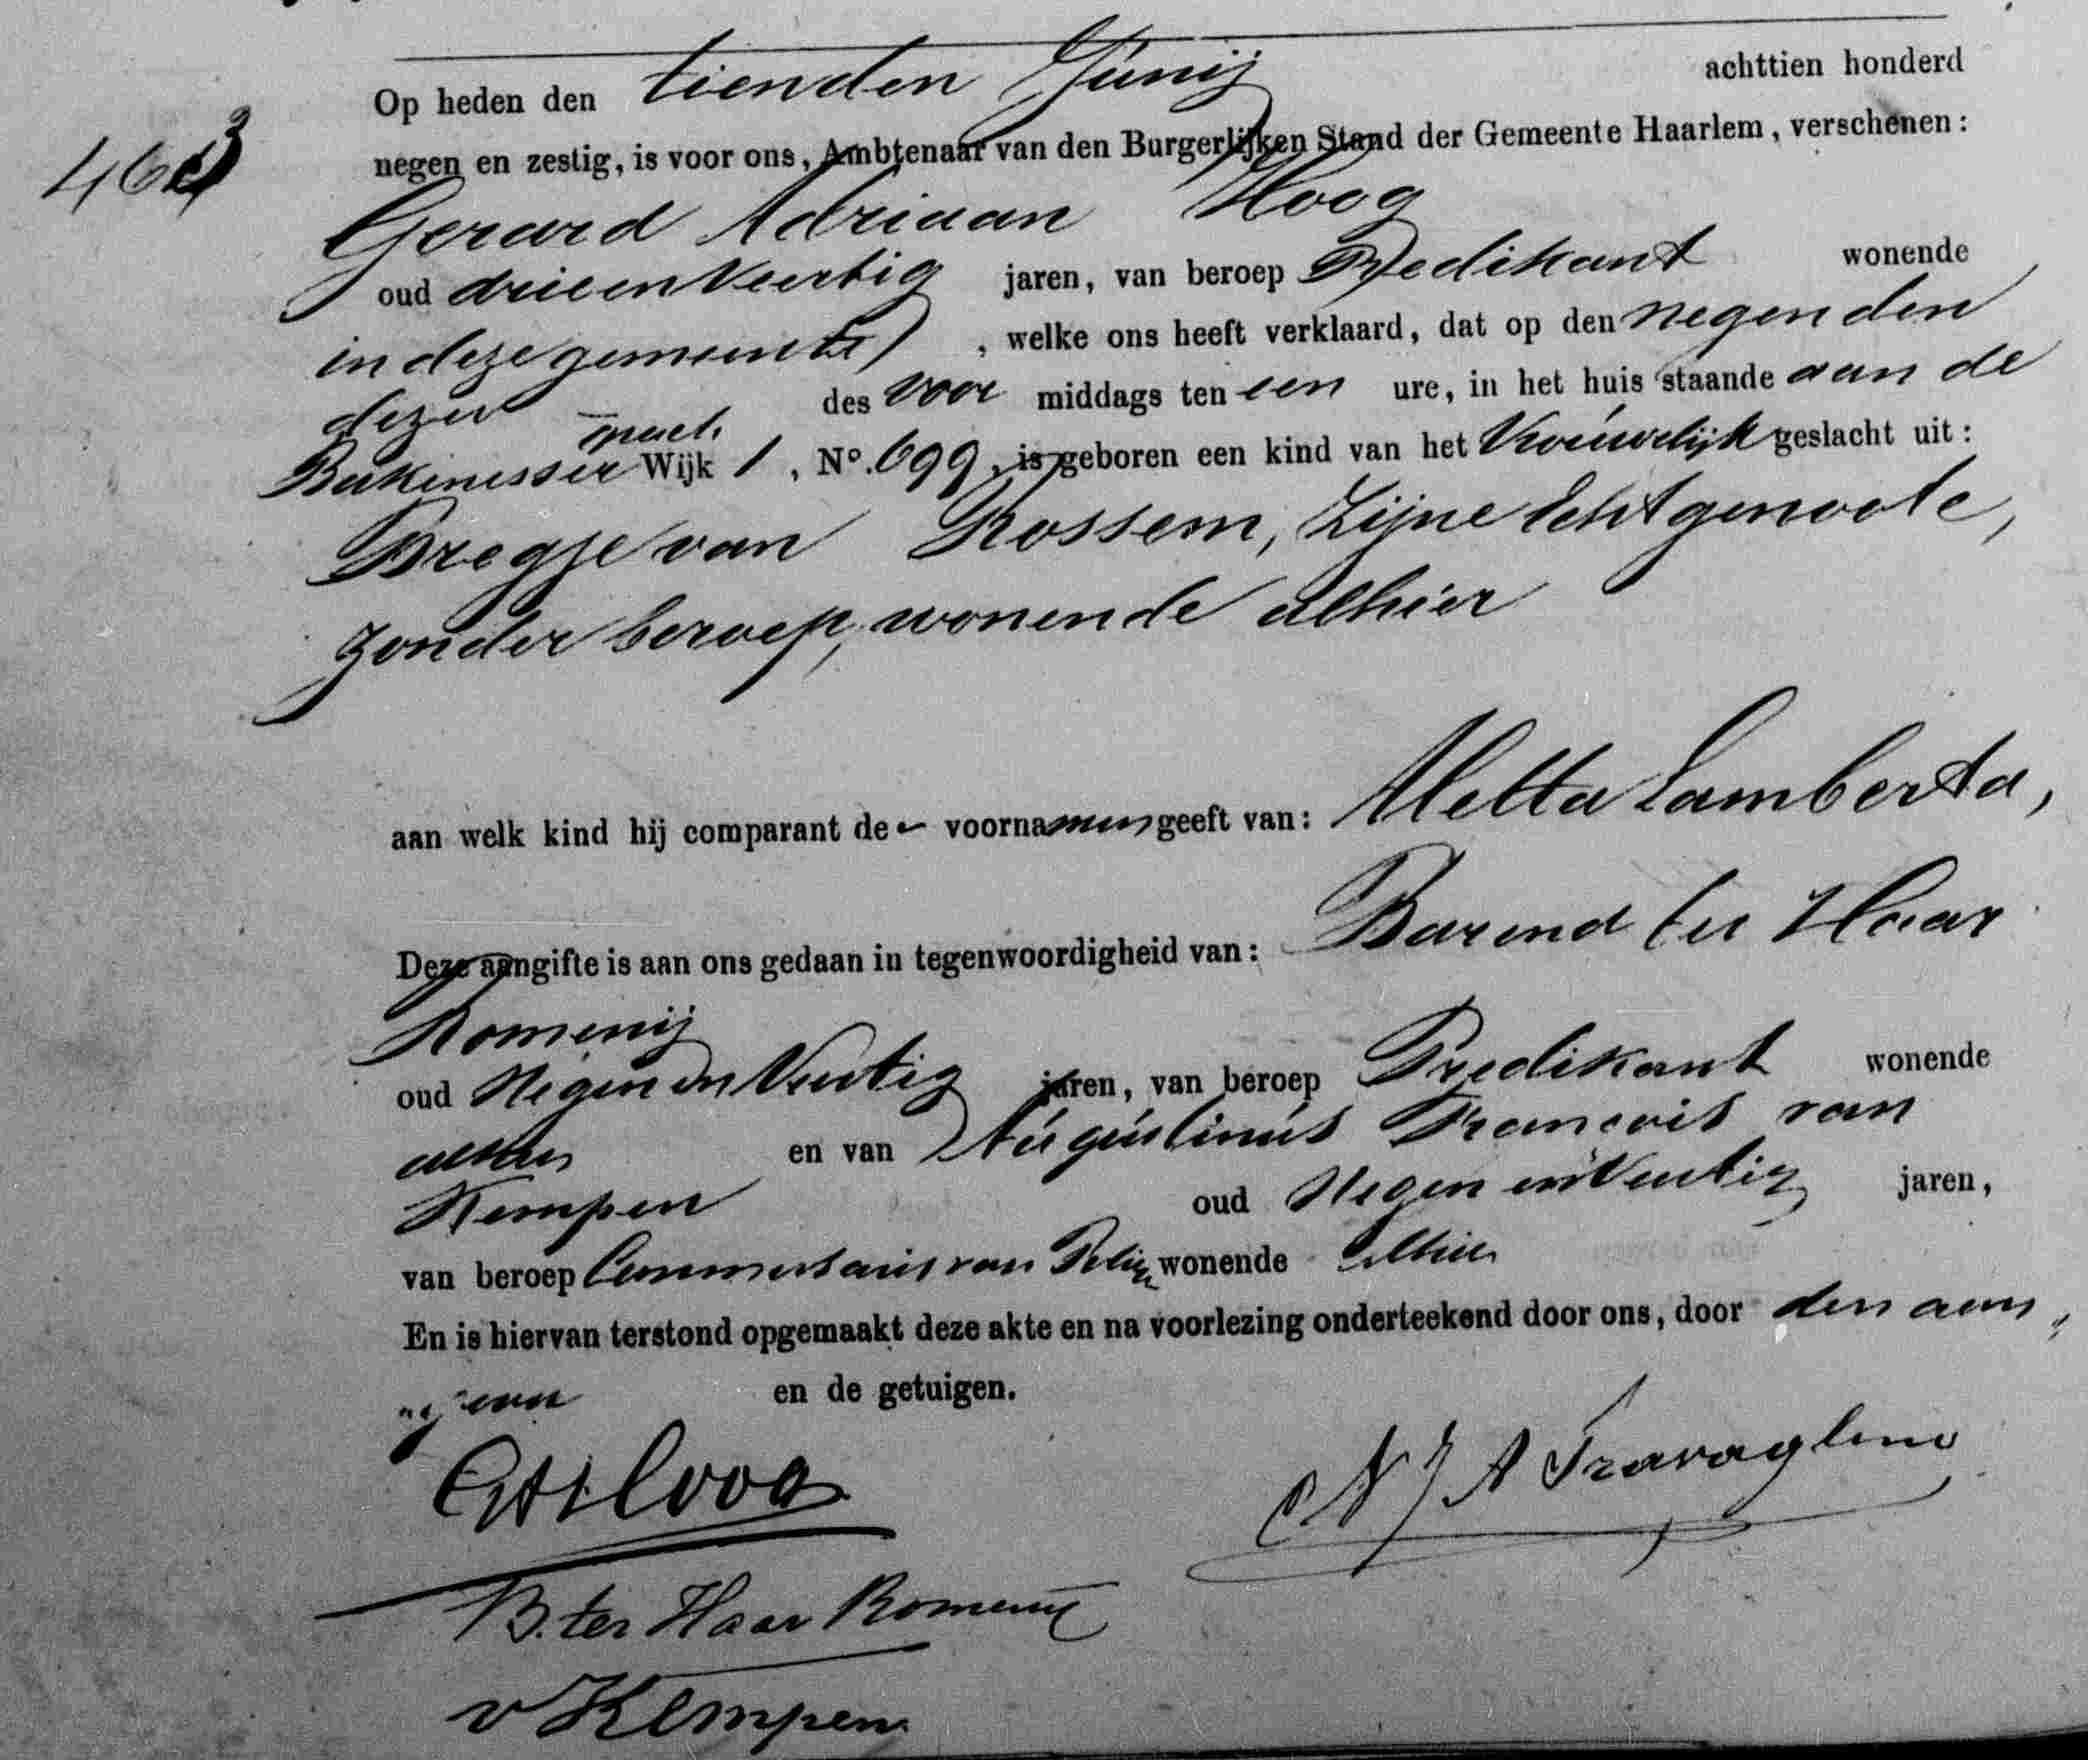 Op heden den tienden Junij achttien honderd
463
negen en zestig, is voor ons, Ambtenaar van den Burgerlijken Stand der Gemeente Haarlem, verschenen:
Gerard Adriaan Hoog
oud drieenveertig jaren, van beroep Predikant wonende
in deze gemeente, welke ons heeft verklaard, dat op den negenden
dezer des voor middags ten een ure, in het huis staande aan de
gracht
Bakenesser Wijk 1, No. 699, is geboren een kind van het Vrouwelijk geslacht uit:
Bregje van Rossem, zijne Echtgenoote,
zonder beroep, wonende alhier
aan welk kind hij comparant de voornamen geeft van: Aletta Lamberta,
Deze aangifte is aan ons gedaan in tegenwoordigheid van: Barend ter Haar
Romenij
oud Negen en Veertig jaren, van beroep Predikant wonende
alhier en van Augustinus Francois van
Kempen oud Negen en Veertig jaren,
van beroep Commissaris van Policie wonende alhier
En is hiervan terstond opgemaakt deze akte en na voorlezing onderteekend door ons, door den aan„
„gever en de getuigen.
GAHoog
N J A Travaglino
B. ter Haar Romenij
v Kempen.